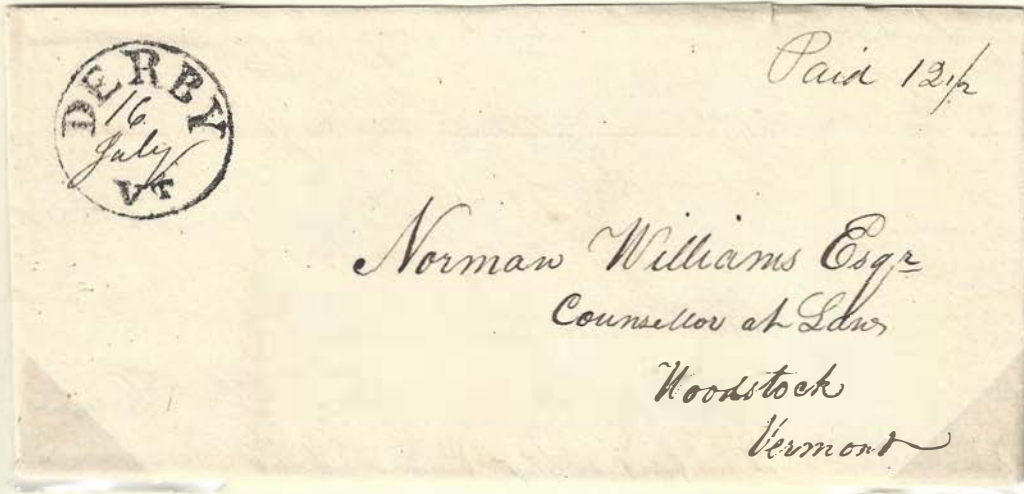 DERBY
16
July
VT
Paid 12 1/2
Norman Williams Esqr
Counsellor at Law
Woodstock
Vermont